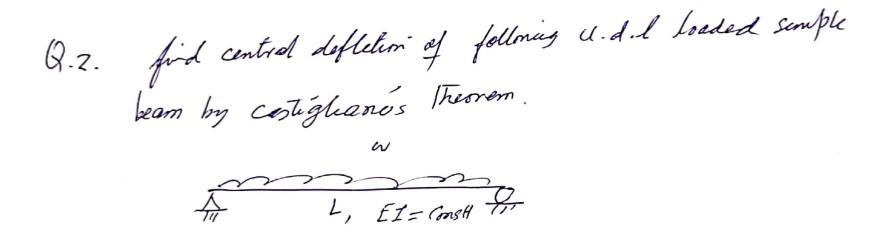 Q.2. find central defletion of following u.d.l loaded simple
beam by castiglianos Theorem.
w
L, EI = Constt